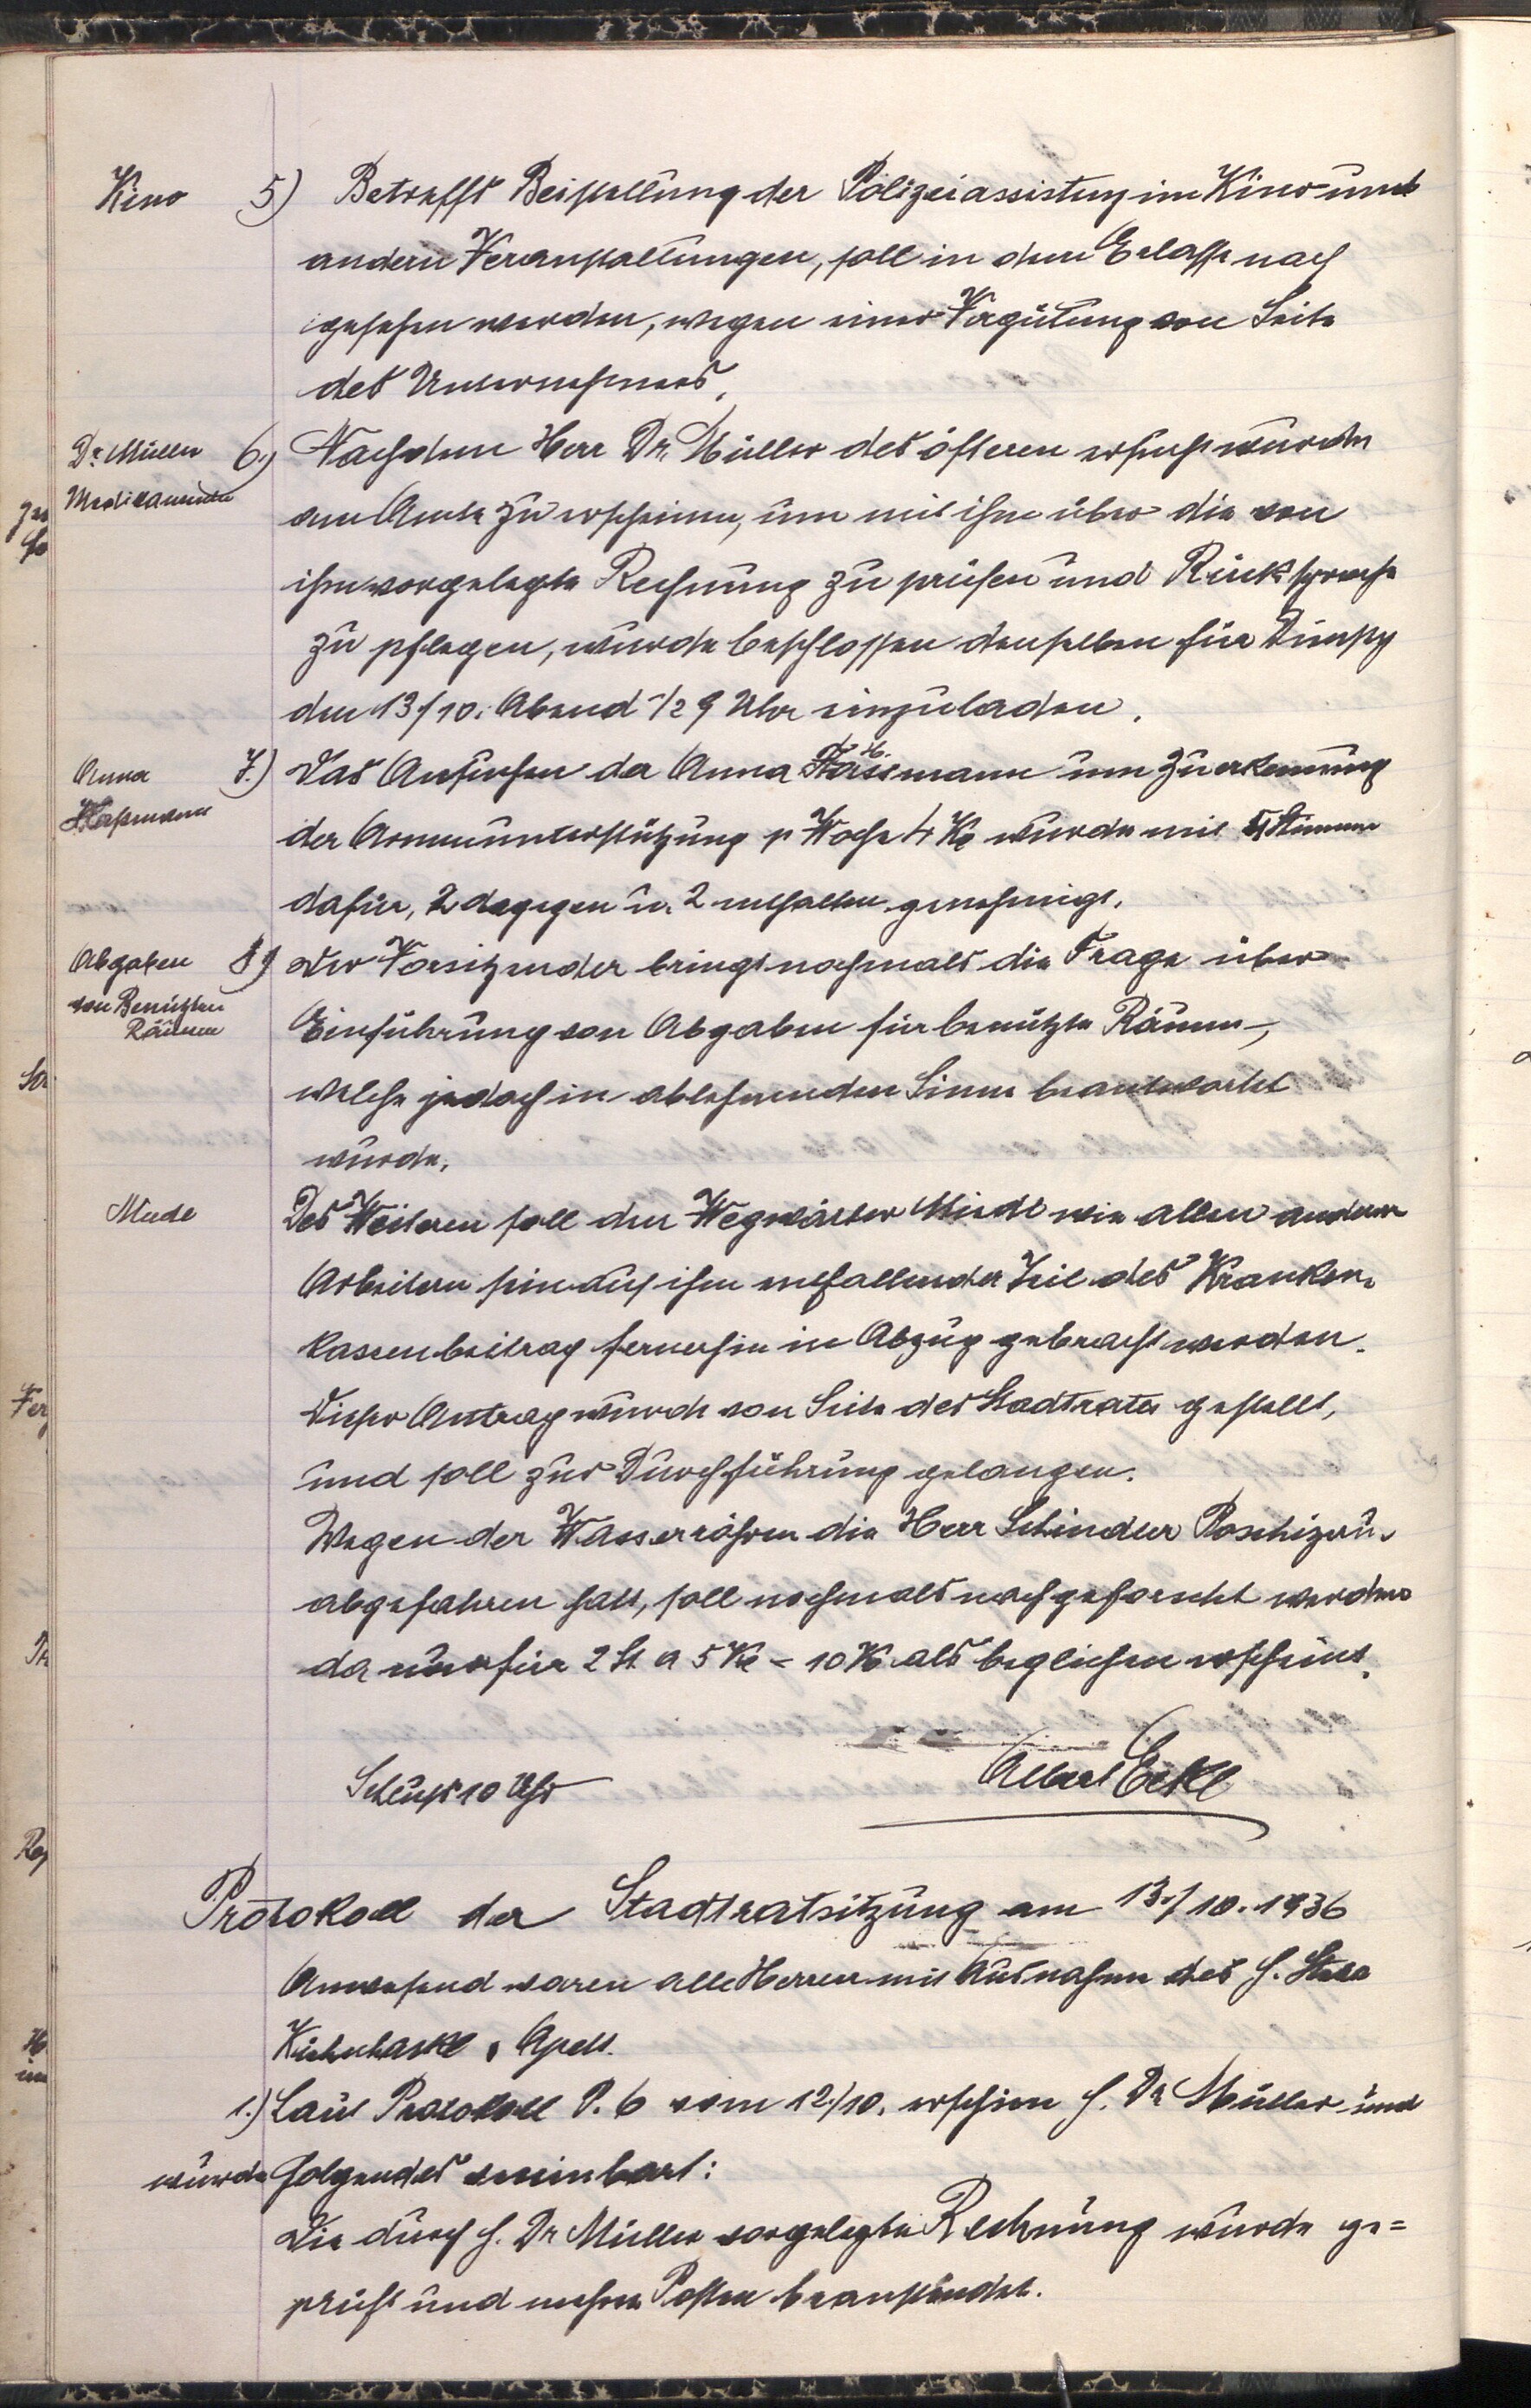 Kino 5) Betrefft Beistellung der Polizeiassistenz im Kino und
andern Veranstaltungen, soll in dem Erlasse nach
gesehen werden, wegen einer Vergütung von Seite
des Unternehmers.
Dr. Müller 6.) Nachdem Herr Dr. Müller des öfteren ersucht wurde
Medikamente am Amte zu erscheinen, um mit ihm über die von
ihm vorgelegte Rechnung zu prüfen und Rücksprache
zu pflegen, wurde beschlossen denselben für Dienstag
den 13./10. Abend ½ 9 Uhr einzuladen.
Anna 7.) Das Ansuchen der Anna um Zuerkennung
der Armenunterstützung p Woche 4 Kč wurde mit 4 Stimmen
dafür, 2 dagegen u. 2 enthalten genehmigt.
Abgaben 8) Der Vorsitzender bringt nochmals die Frage über
von Benützten Einführung von Abgaben für benützte Räume,
Räumen
welche jedoch in ablehnenden Sinne beantwortet
wurde.
Miedl Des Weiteren soll den Wegwärter Miedl wie allen andern
Arbeitern sein auf ihn entfallender Teil des Kranken-
kassenbeitrag fernerhin in Abzug gebracht werden.
Dieser Antrag wurde von Seite des Stadtrates gestellt,
und soll zur Durchführung gelangen.
Wegen der Wasserröhren die Herr Schindler
abgefahren hatt, soll nochmals nachgeforscht werden
da nur für 2 St. a 5 Kč = 10 Kč als beglichen erscheint.
Schluss 10 Uhr
Albert Eckl
Protokoll der Stadtratsitzung am 13./10. 1936
Anwesend waren alle Herren mit Ausnahme des H.
Apelt.
1.) Laut Protokoll P. 6 vom 12./10. erschien H. Dr Müller und
wurde folgendes vereinbart:
Die durch H. Dr Müller vorgelegte Rechnung wurde ge=
prüft und mehrere Posten beanständet.